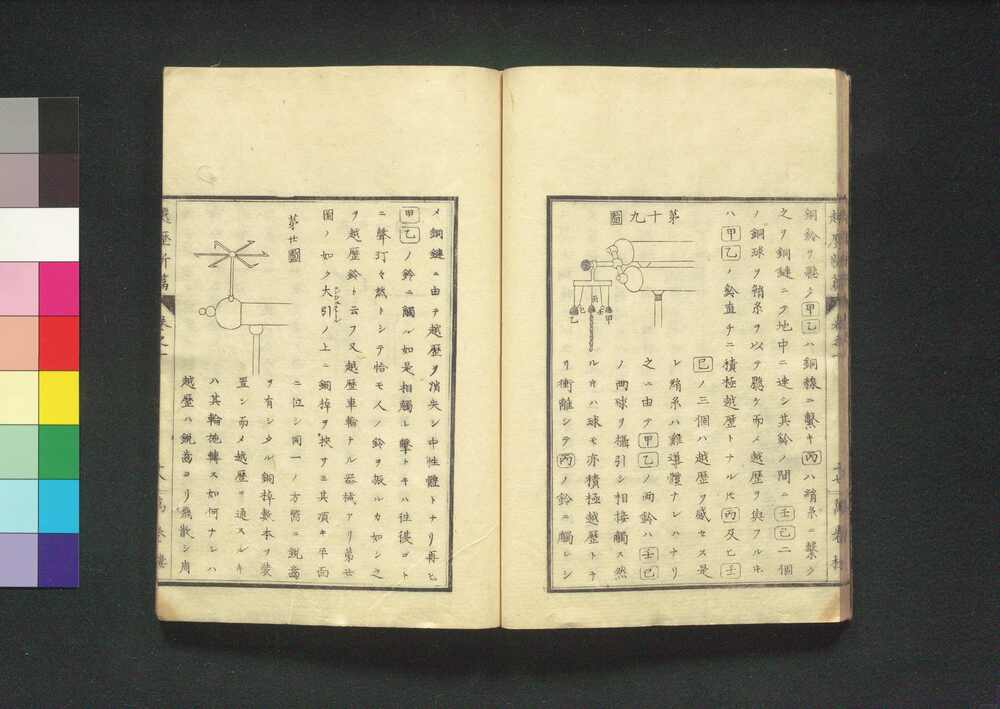 銅鈴ヲ懸ク甲乙ハ銅線ニ繫キ丙ハ絹糸ニ繫ク
之ヲ銅鏈ニテ地中ニ連シ其鈴ノ間ニ壬己二個
ノ銅球ヲ絹糸ヲ以テ懸ケ而メ越歴ヲ與フルキ
ハ甲乙ノ鈴直チニ積極越歴トナル𪜈丙及ヒ壬
己ノ三個ハ越歴ヲ感セス是
レ絹糸ハ難導體ナレハナリ
之ニ由テ甲乙ノ両鈴ハ壬己
ノ両球ヲ攝引シ相接觸ス然
ルカハ球モ亦積極越歴トナ
リ衝離シテ丙ノ鈴ニ觸レシ
第十九圖
甲
丙
乙
メ銅鏈ニ由テ越歴ヲ消失シ中性體トナリ再ヒ
甲乙ノ鈴ニ觸ル如是相觸レ擊トキハ徃復コト
ニ聲玎々然トシテ恰モ人ノ鈴ヲ振ルカ如シ之
ヲ越歴鈴ト云フ又越歴車輪ナル器械アリ第廿
圖ノ如ク大引ノ上ニ銅掉ヲ挾サミ其頂キ平面
ニ位シ同一ノ方嚮ニ鋭耑
ヲ有シタル銅掉數本ヲ裝
置シ而メ越歴ヲ通スルキ
ハ其輪旋轉ス如何ナレハ
越歴ハ鋭耑ヨリ飛散シ周
第廿圖
越歴新篇
卷之一